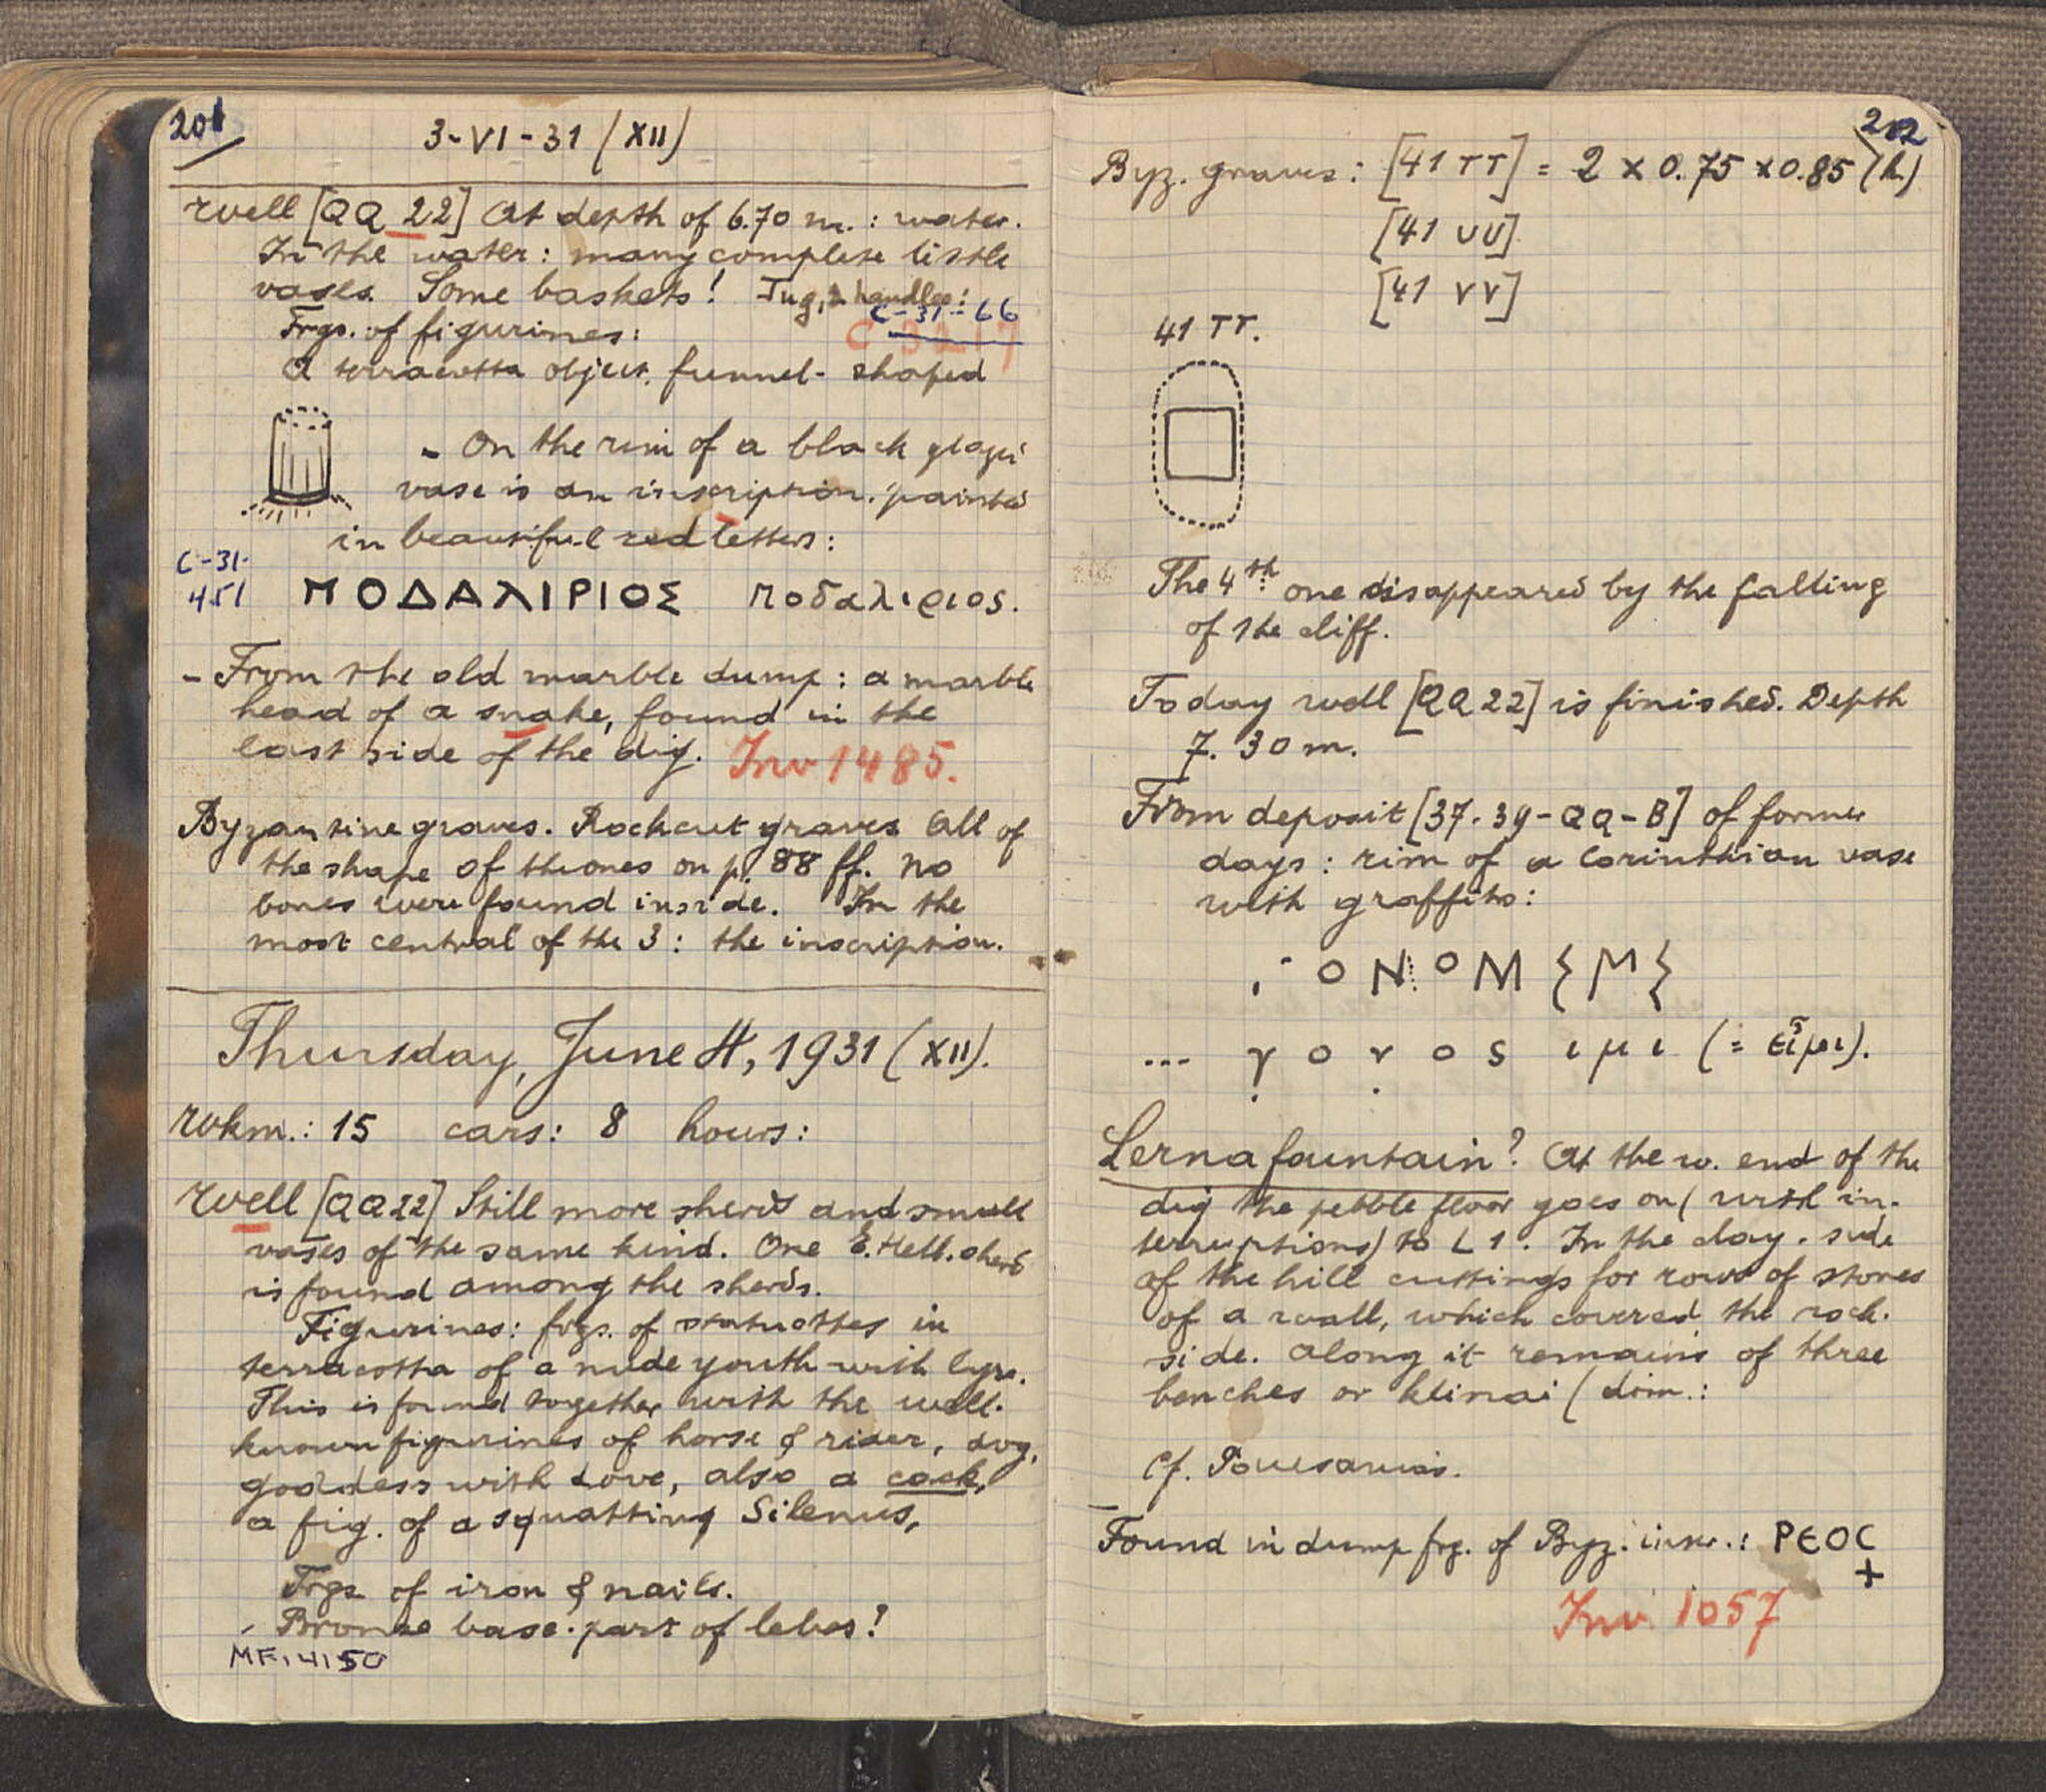 201
3-VI-31 (XII)
Well [QQ 22] At depth of 6.70 m.: water.
In the water: many complete little
vases. Some baskets! Jug, 2 handles:
C-31-66
Frgs. of figurines:
C 3217
A terracotta object, funnel-shaped
- On the rim of a black glaze
vase is an inscription, painted
in beautiful red letters:
C-31-
451
ΠΟΔΑΛΙΡΙΟΣ Ποδαλιριος.
- From the old marble dump: a marble
head of a snake, found in the
east side of the dig. Inv 1485.
Byzantine graves. Rockcut graves. All of
the shape of the ones on p. 88 ff. No
bones were found inside. In the
most central of the 3: the inscription.
Thursday, June 4, 1931 (XII).
Wkm.: 15 cars: 8 hours:
Well [QQ22] Still more sherds and small
vases of the same kind. One E. Hell. sherd
is found among the sherds.
Figurines: frgs. of statuettes in
terracotta of a nude youth with lyre.
This is found together with the well-
known figurines of horse & rider, dog,
goddess with dove, also a cock,
a fig. of a squatting Silenus,
Frgs. of iron & nails.
- Bronze base-part of lebes?
MF.4150
202
Byz. graves: [41 TT] = 2 x 0.75 x 0.85 (h.)
[41 UU]
[41 VV]
41 TT.
The 4th one disappeared by the falling
of the cliff.
Today well [QQ22] is finished. Depth
7.30 m.
From deposit [37-39-QQ-B] of former
days: rim of a Corinthian vase
with graffito:
ΟΝΟΜ {Μ{
... γ ο ν ο ς ι μ ι (= εἶμι).
Lerna fountain? At the w. end of the
dig the pebble floor goes on (with in-
terruptions) to L 1. In the clay-side
of the hill cuttings for rows of stones
of a wall, which covered the rock-
side. Along it remains of three
benches or klinai (dim.:
Cf. Pausanias.
Found in dump frg. of Byz. inscr.: ΡЄΟC
+
Inv 1057